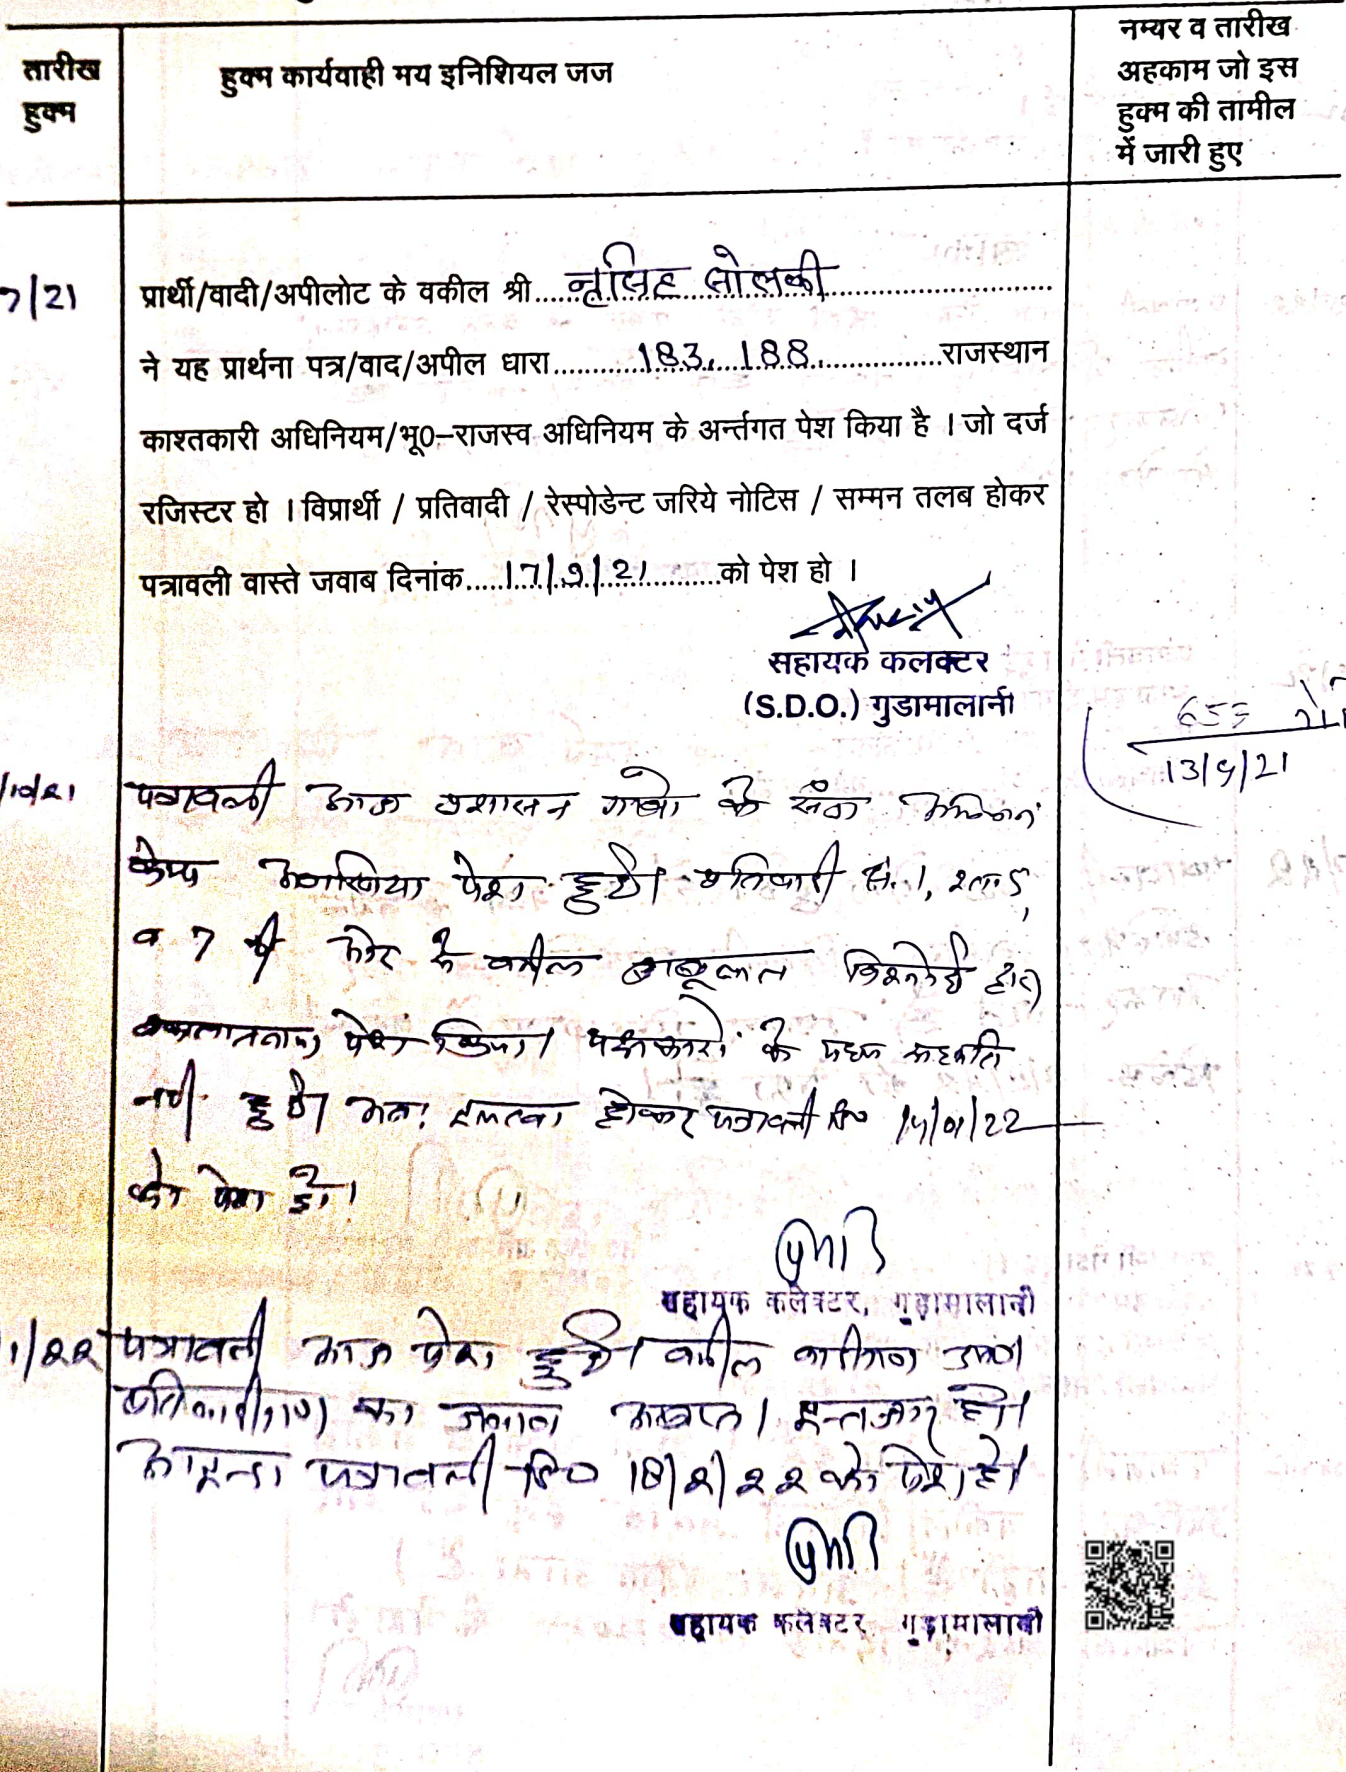 तारीख
हुक्म
हुक्म कार्यवाही मय इनिशियल जज
नम्बर व तारीख
अहकाम जो इस
हुक्म की तामील
में जारी हुए
7/21
प्रार्थी/वादी/अपीलोट के वकील श्री....नृसिंह सोलंकी....
ने यह प्रार्थना पत्र/वाद/अपील धारा....183, 188....राजस्थान
काश्तकारी अधिनियम/भू0–राजस्व अधिनियम के अर्न्तगत पेश किया है । जो दर्ज
रजिस्टर हो । विप्रार्थी / प्रतिवादी / रेस्पोडेन्ट जरिये नोटिस / सम्मन तलब होकर
पत्रावली वास्ते जवाब दिनांक....17/9/21....को पेश हो ।
सहायक कलक्टर
(S.D.O.) गुडामालानी
653
13/9/21
/10/21
पत्रावली आज प्रशासन गावो के संग अभियान
केम्प पेश हुई। प्रतिवादी सं. 1, 2 ता 5,
व 7 की ओर से वकील बाबूलाल विश्नोई द्वारा
वकालातनामा पेश किया। पक्षकारो के मध्य सहमति
नही हुई। अतः होकर पत्रावली दि०
को पेश हो।
सहायक कलेक्टर, गुड़ामालानी
1/22
पत्रावली आज पेश हुई। वकील वादीगण उप०।
प्रतिवादीगण का जवाब अप्राप्त। इन्तजार हो।
आइन्दा पत्रावली दि० 18/2/22 को पेश हो।
सहायक कलेक्टर गुड़ामालानी